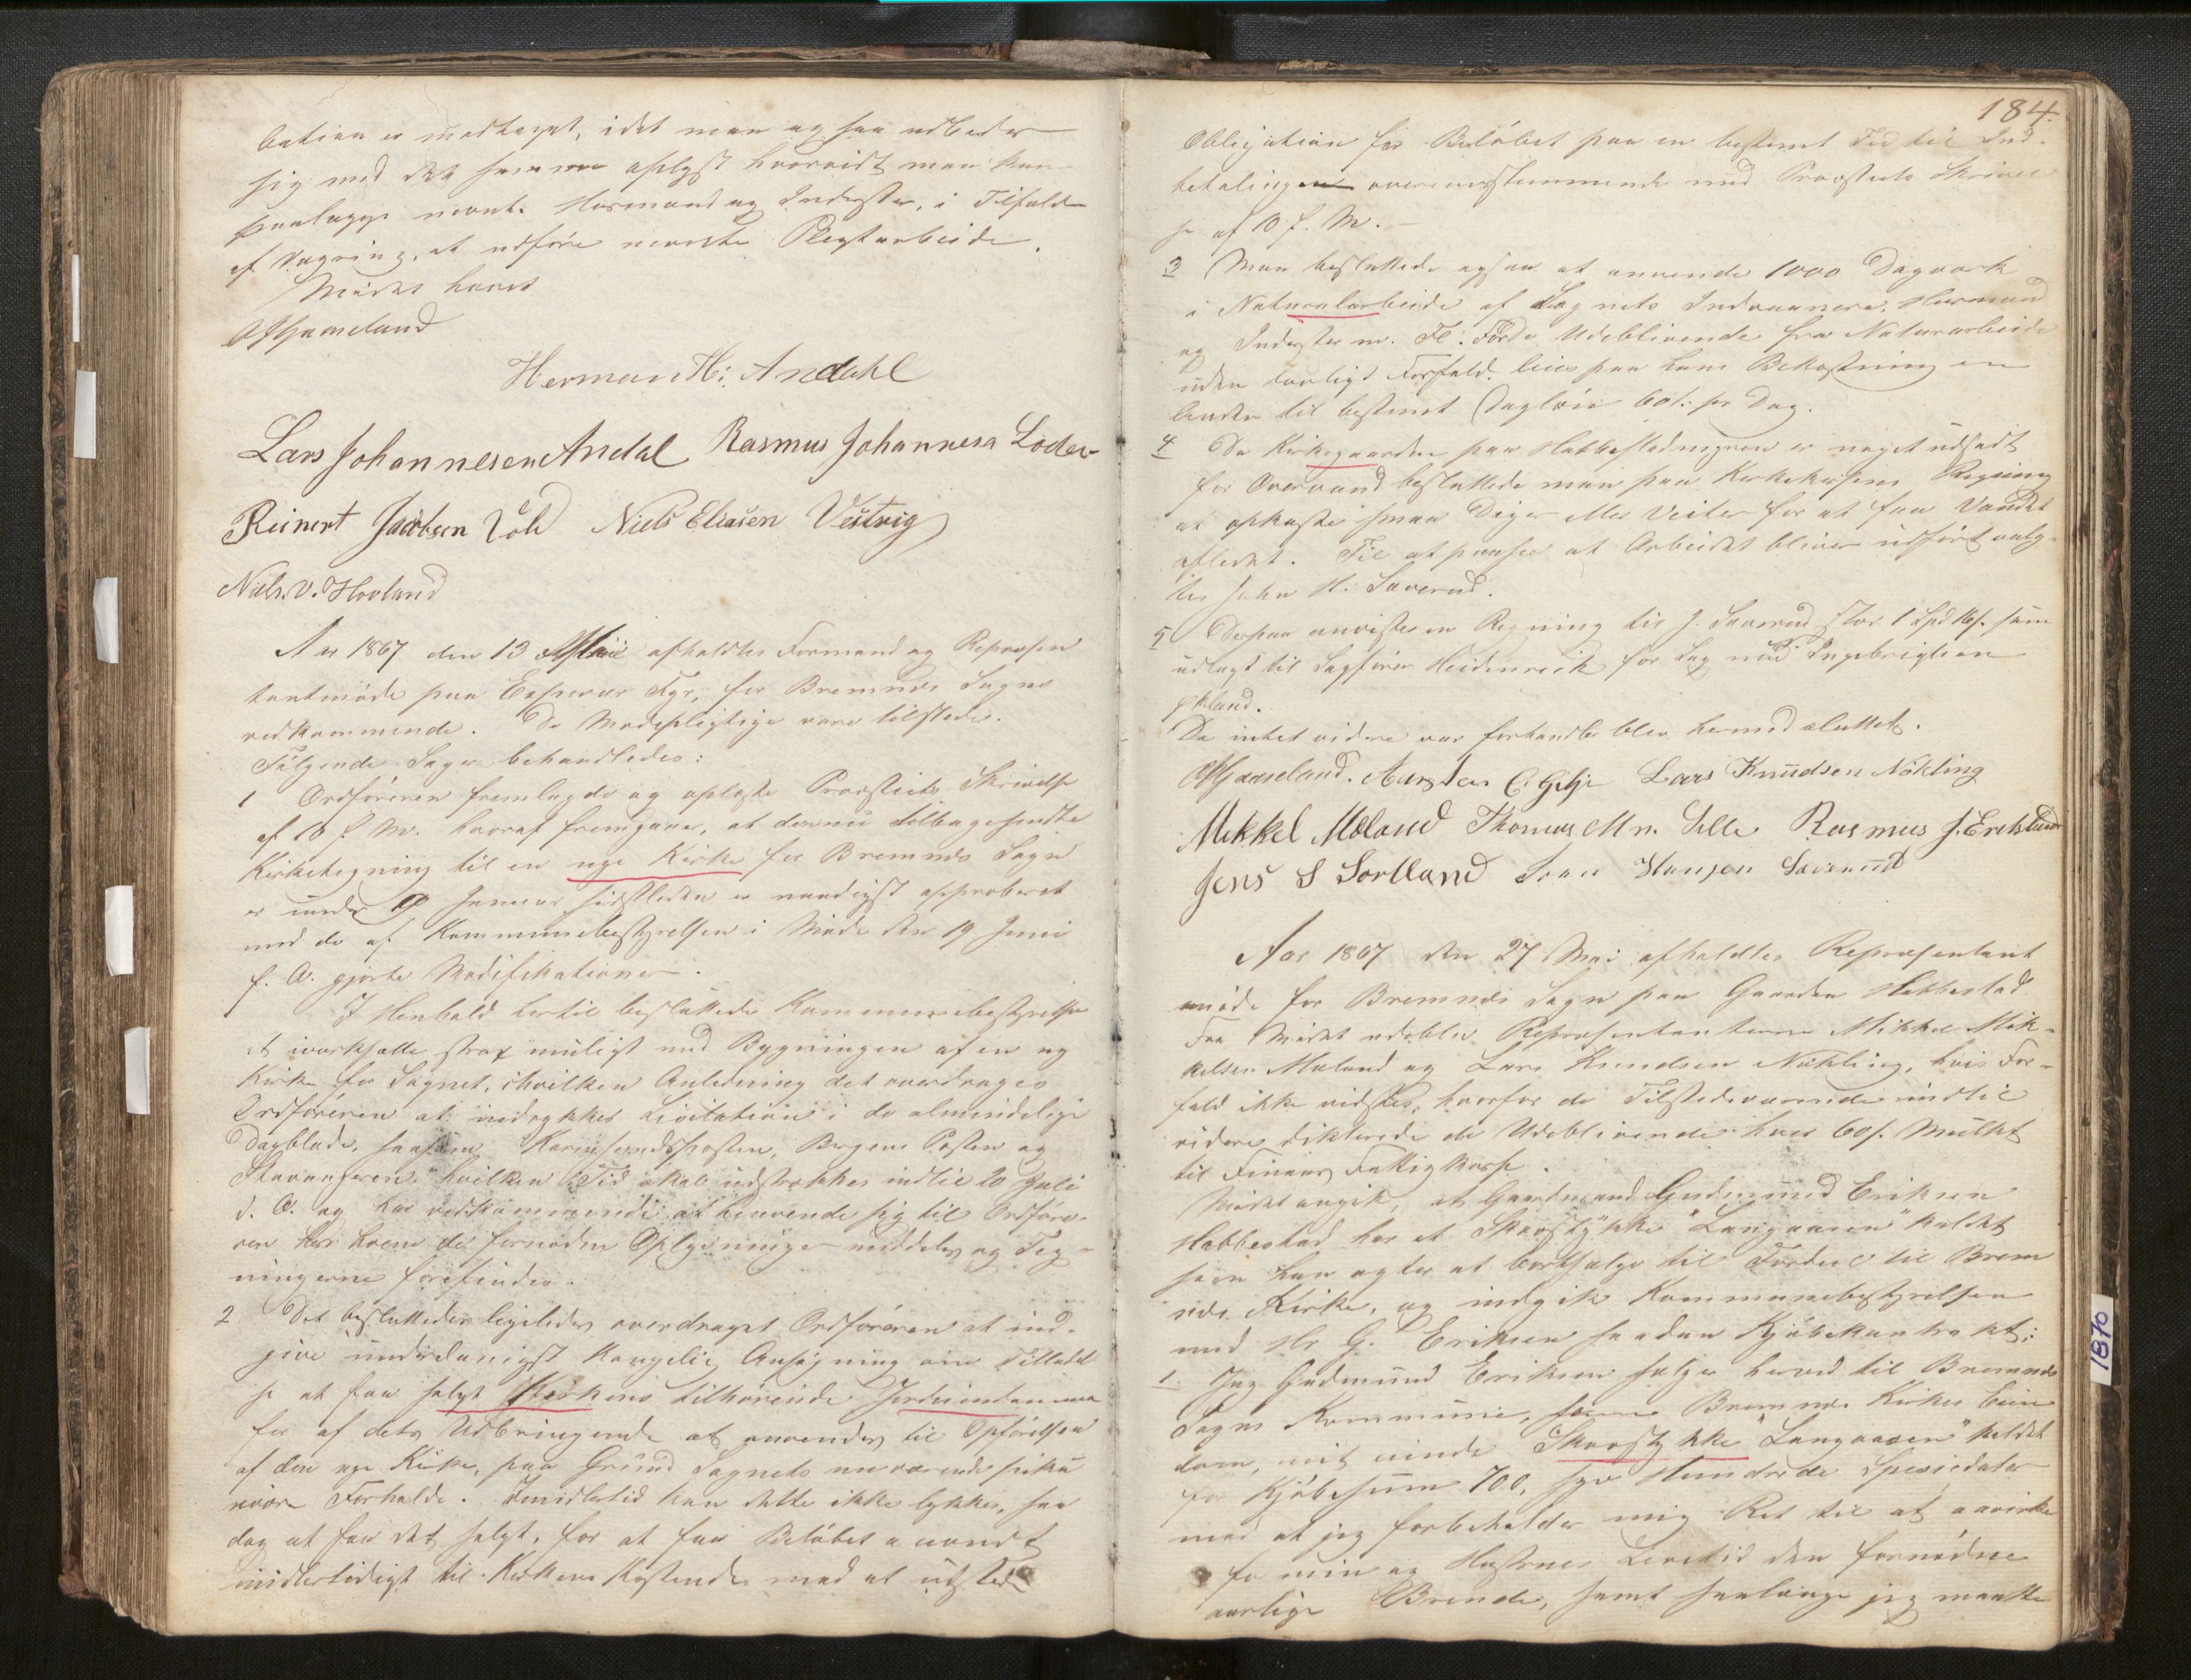 bation er modtaget, idet man og saa udbeder
sig med det samme oplyst hvorvidt man kan
paalægge nævnte Husmænd og Inderster, i Tilfælde
af Vægring, at udføre nævnte Pligtarbeide.
Mødet hævet
Hermann H: Andahl
Lars Johannesen Andal Rasmus Johannesn Loder
Reinert Jacobsen Vold Niels Eliasen Vestvig
Niels. V. Hovland
Aar 1867 den 13 Mai afholdtes Formand og Repræsen
tantmøde paa Espevær Fyr, for Bremnæs Sogns
vedkommende. De Mødepligtige vare tilstede.
Følgende Sager behandledes:
1 Ordføreren fremlagde og oplæste Provstiets Skrivelse
af 10 f. M. hvoraf fremgaar, at den nu tilbagesendte
Kirketegning til en nye Kirke for Bremnæs Sogn
er under 9 Januar sidstleden er naadigst approberet
med de af Kommunebestyrelsen i Møde den 19 Juni
f. A. gjorte Modifikationer.
I Henhold hertil besluttede Kommunebestyrelsen
at iværksætte strax muligt med Bygningen af en ny
Kirke for Sognet, i hvilken Anledning det overdroges
Ordføreren at indrykkes Licitation i de almindelige
Dagblade, saasom Karmsundsposten, Bergens Posten og
Stavangeren, hvilken Tid skal udstrækkes indtil 20 Juli
d. A. og har vedkommende at henvende sig til Ordføre-
ren hos hvem de fornødne Oplysninger meddeles og Teg-
ningerne forefindes.
2 Det besluttedes ligeledes overdraget Ordføreren at ind-
give underdanigst kongelig Ansøgning om Tilladel
se at faa solgt Kirkens tilhørende Jordeiendomme
for af dets Udbringende at anvendes til Opførelsen
af den nye Kirke, paa Grund Sognets nuværende
Forholde. Imidlertid kan dette ikke lykkes, saa
dog at faa det solgt, for at faa Beløbet anvendt
midlertidigt til Kirkens Kostende mod at udstede
184.
Obligation for Beløbet paa en bestemt Tid til Ind-
betalingen overensstemmende med Provstiets Skrivel
se af 10 f. M. -
3 Man besluttede ogsaa at anvende 1000 Dagværk
i Naturalarbeide af Sognets Indvaanere, Husmænd
og Inderster m. Fl. For de Udeblivende fra Naturarbeide
uden lovligt Forfald leies paa hans Bekostning en
Anden til bestemt Dagløn 60 s. pr Dag.
4 Da Kirkegaarden paa Hobbestadmyren er noget udsadt
for Overvand besluttede man paa Kirkekassens Regning
at opkaste smaa Diger eller Veiter for at faa Vandet
afledet. Til at paasee at Arbeidet bliver udført valg-
tes John H. Saverud.
5 Derpaa anvistes en Regning til J. Saverud stor 1 Spd 16 s. som
udlagt til Sagfører Heidenreich for Sag mod Ingebrigtsen
Da intet videre var forhandle blev hermed sluttet.
Karsten C. Gilje Lars Knudsen Nökling
Mikkel Meland Thomas Mn. Lille Rasmus J. Erikslund
Jens S Sortland Hansen Saverud
Aar 1867 den 27 Mai afholdtes Repræsentant
møde for Bremnæs Sogn paa Gaarden Hobbestad
Fra Mødet udeblev Repræsentanterne Mikkel Mik-
kelsen Meland og Lars Knudsen Nökling, hvis For-
fald ikke vidstes, hvorfor de Tilstedeværende indtil
videre dikterede de Udeblivende hver 60 s. Mulkt
til Finnaas Fattigkasse.
Mødet angik, at Gaardmand Gudmund Eriksen
Hobbestad har et Skovstykke "Langaasen" kaldet
som han agter at bortsælge til Fordeel til Brem
næs Kirke, og indgik Kommunebestyrelsen
med Hr G. Eriksen saadan Kjøbekontrakt:
1. Jeg Gudmund Eriksen sælger herved til Bremnæs
Sogns Kommune, som Bremnæs Kirkes Eien
dom, mit eiende Skovstykke "Langaasen" kaldet
for Kjøbesum 700, syv Hundrede Speciedaler
mod at jeg forbeholder mig Ret til at aavirke
for min og Hustrues Levetid den fornødne
aarlige Brænde, samt saalænge jeg maatte
1870